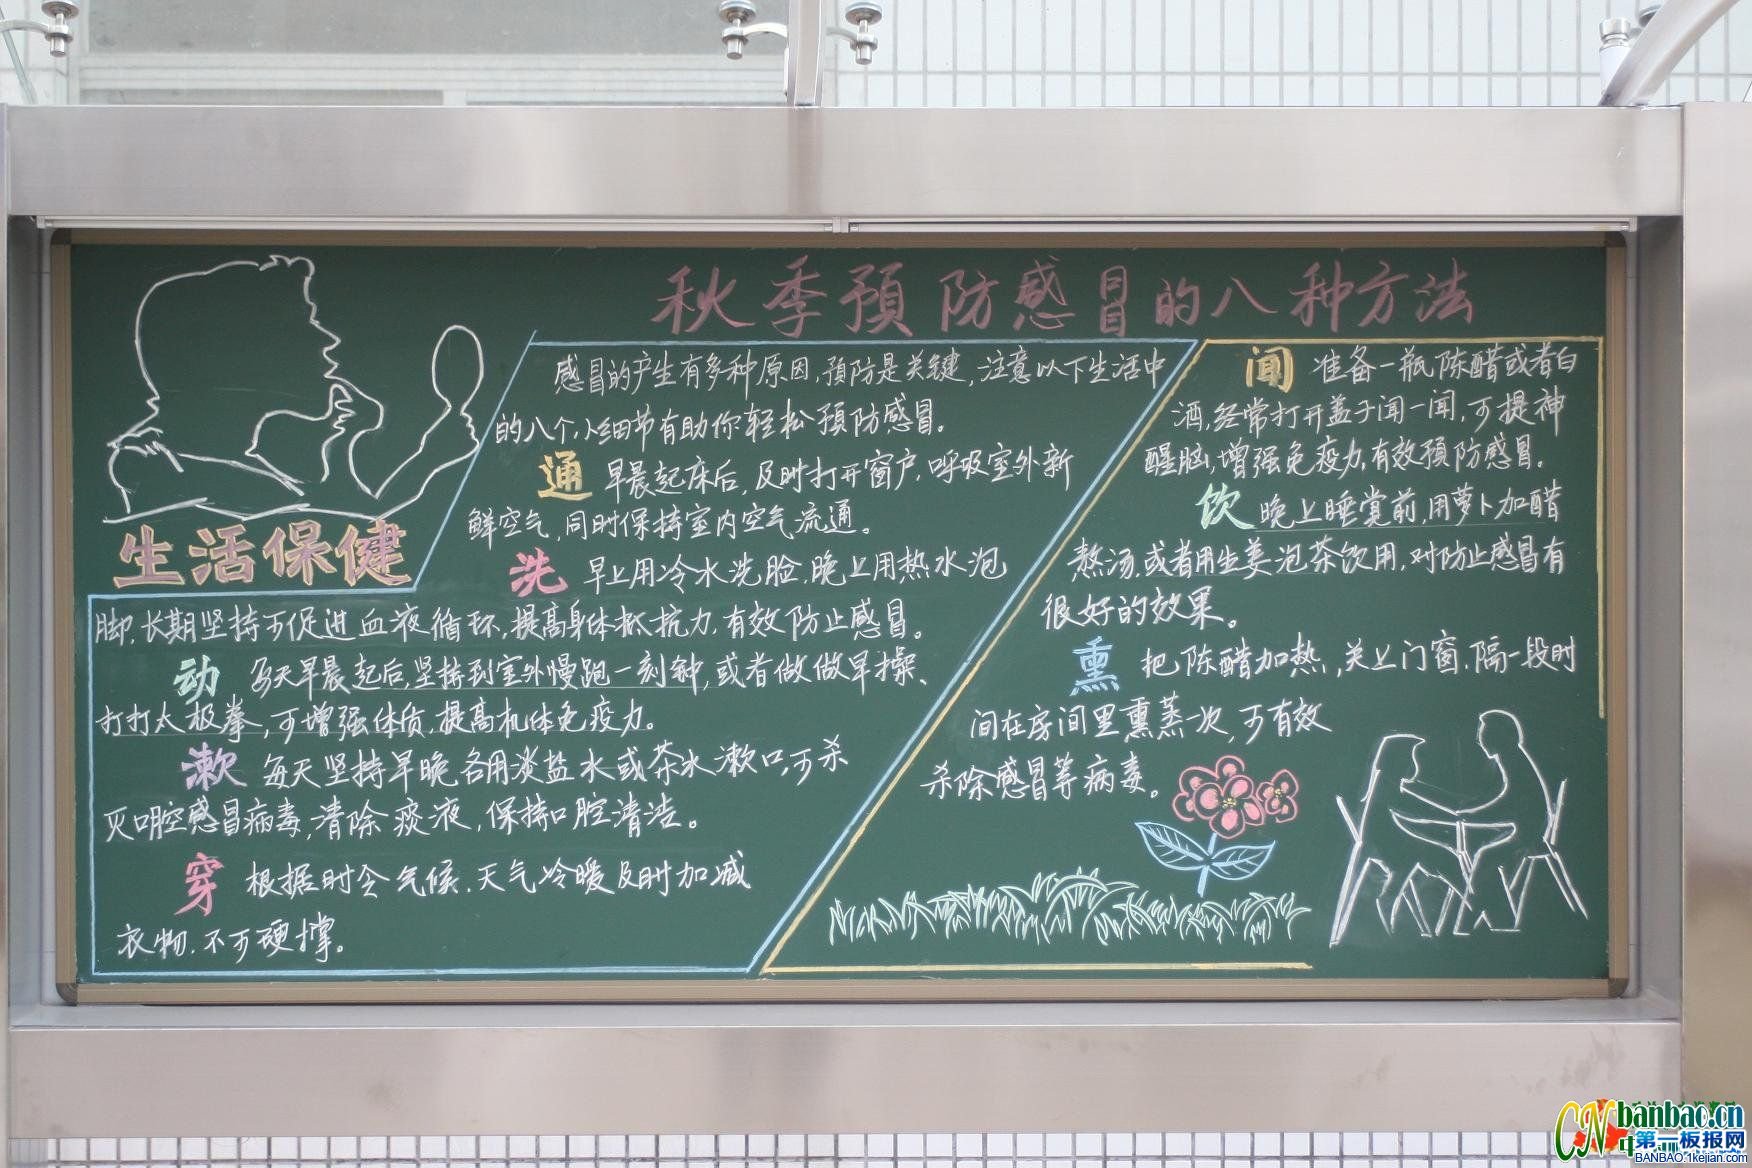 秋季預防感冒的八种方法
生活保健
感冒的产生有多种原因,預防是关键,注意以下生活中
的八个小细节有助你轻松預防感冒。
通 早晨起床后,及时打开窗户,呼吸室外新
鲜空气,同时保持室内空气流通。
洗 早上用冷水洗脸,晚上用热水泡
脚,长期坚持可促进血液循环,提高身体抵抗力,有效防止感冒。
动 每天早晨起后,坚持到室外慢跑一刻钟,或者做做早操、
打打太极拳,可增强体质,提高机体免疫力。
漱 每天坚持早晚各用淡盐水或茶水漱口,可杀
灭口腔感冒病毒,清除痰液,保持口腔清洁。
穿 根据时令气候,天气冷暖及时加减
衣物,不可硬撑。
闻 准备一瓶陈醋或者白
酒,经常打开盖子闻一闻,可提神
醒脑,增强免疫力,有效預防感冒。
饮 晚上睡觉前,用萝卜加醋
熬汤,或者用生姜泡茶饮用,对防止感冒有
很好的效果。
熏 把陈醋加热,关上门窗,隔一段时
间在房间里熏蒸一次,可有效
杀除感冒等病毒。
CNbanbao.cn
第一板报网
BANBAO.1kejian.com